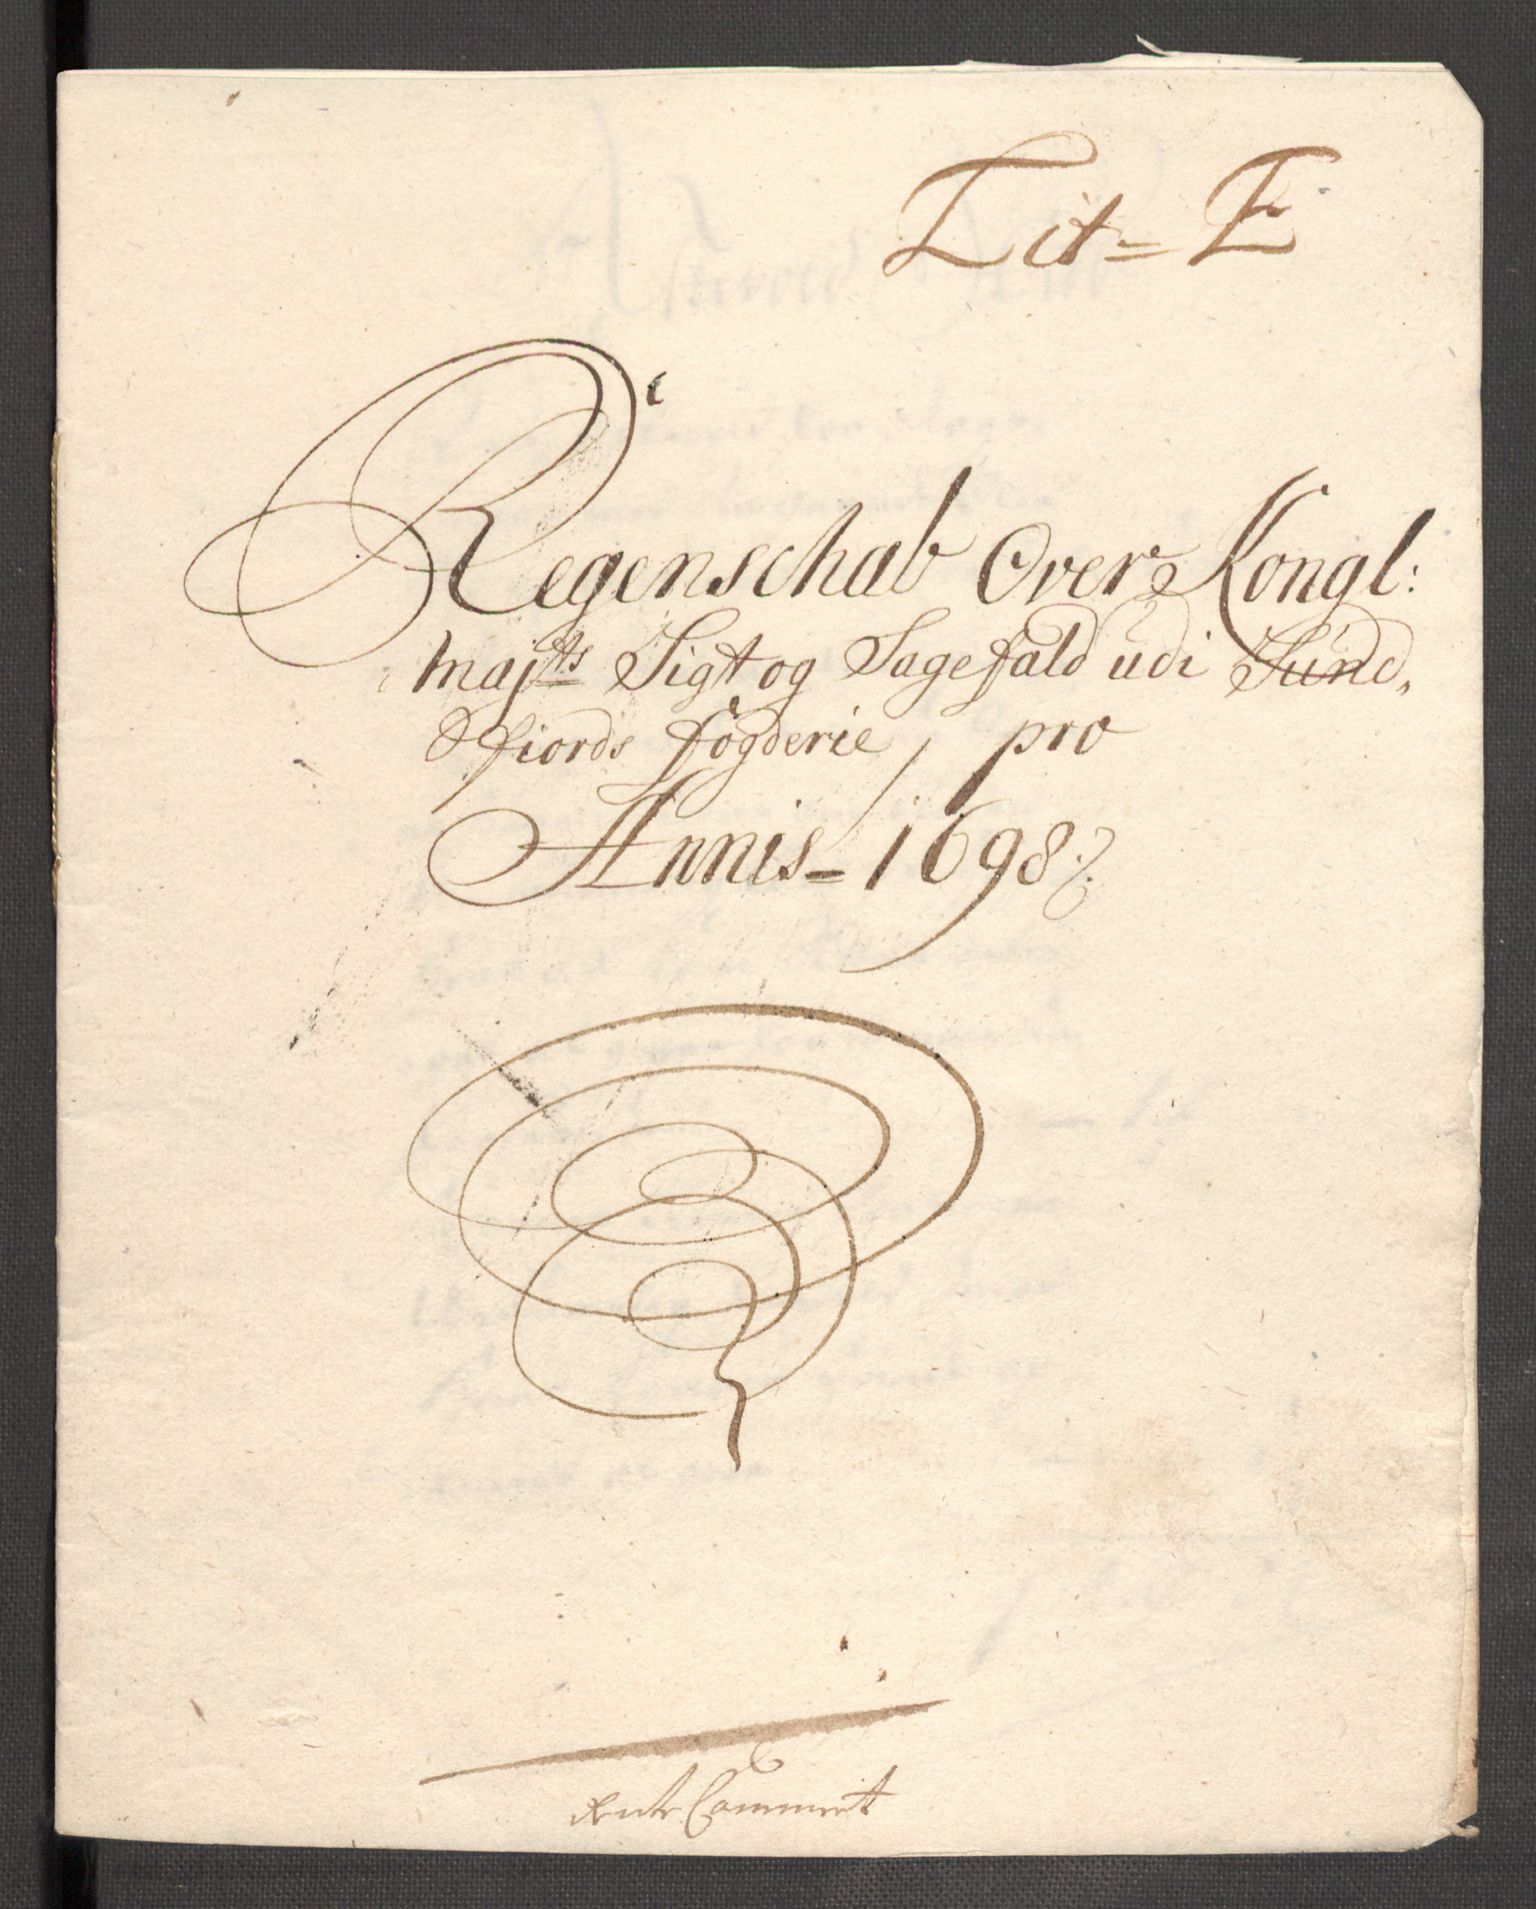 Lit= E
Regenschab Over Kongl:
Majts Sigt og Sagefald udi Sund,
fiords fogderie, pro
Annis= 1698
Rente Cammerit